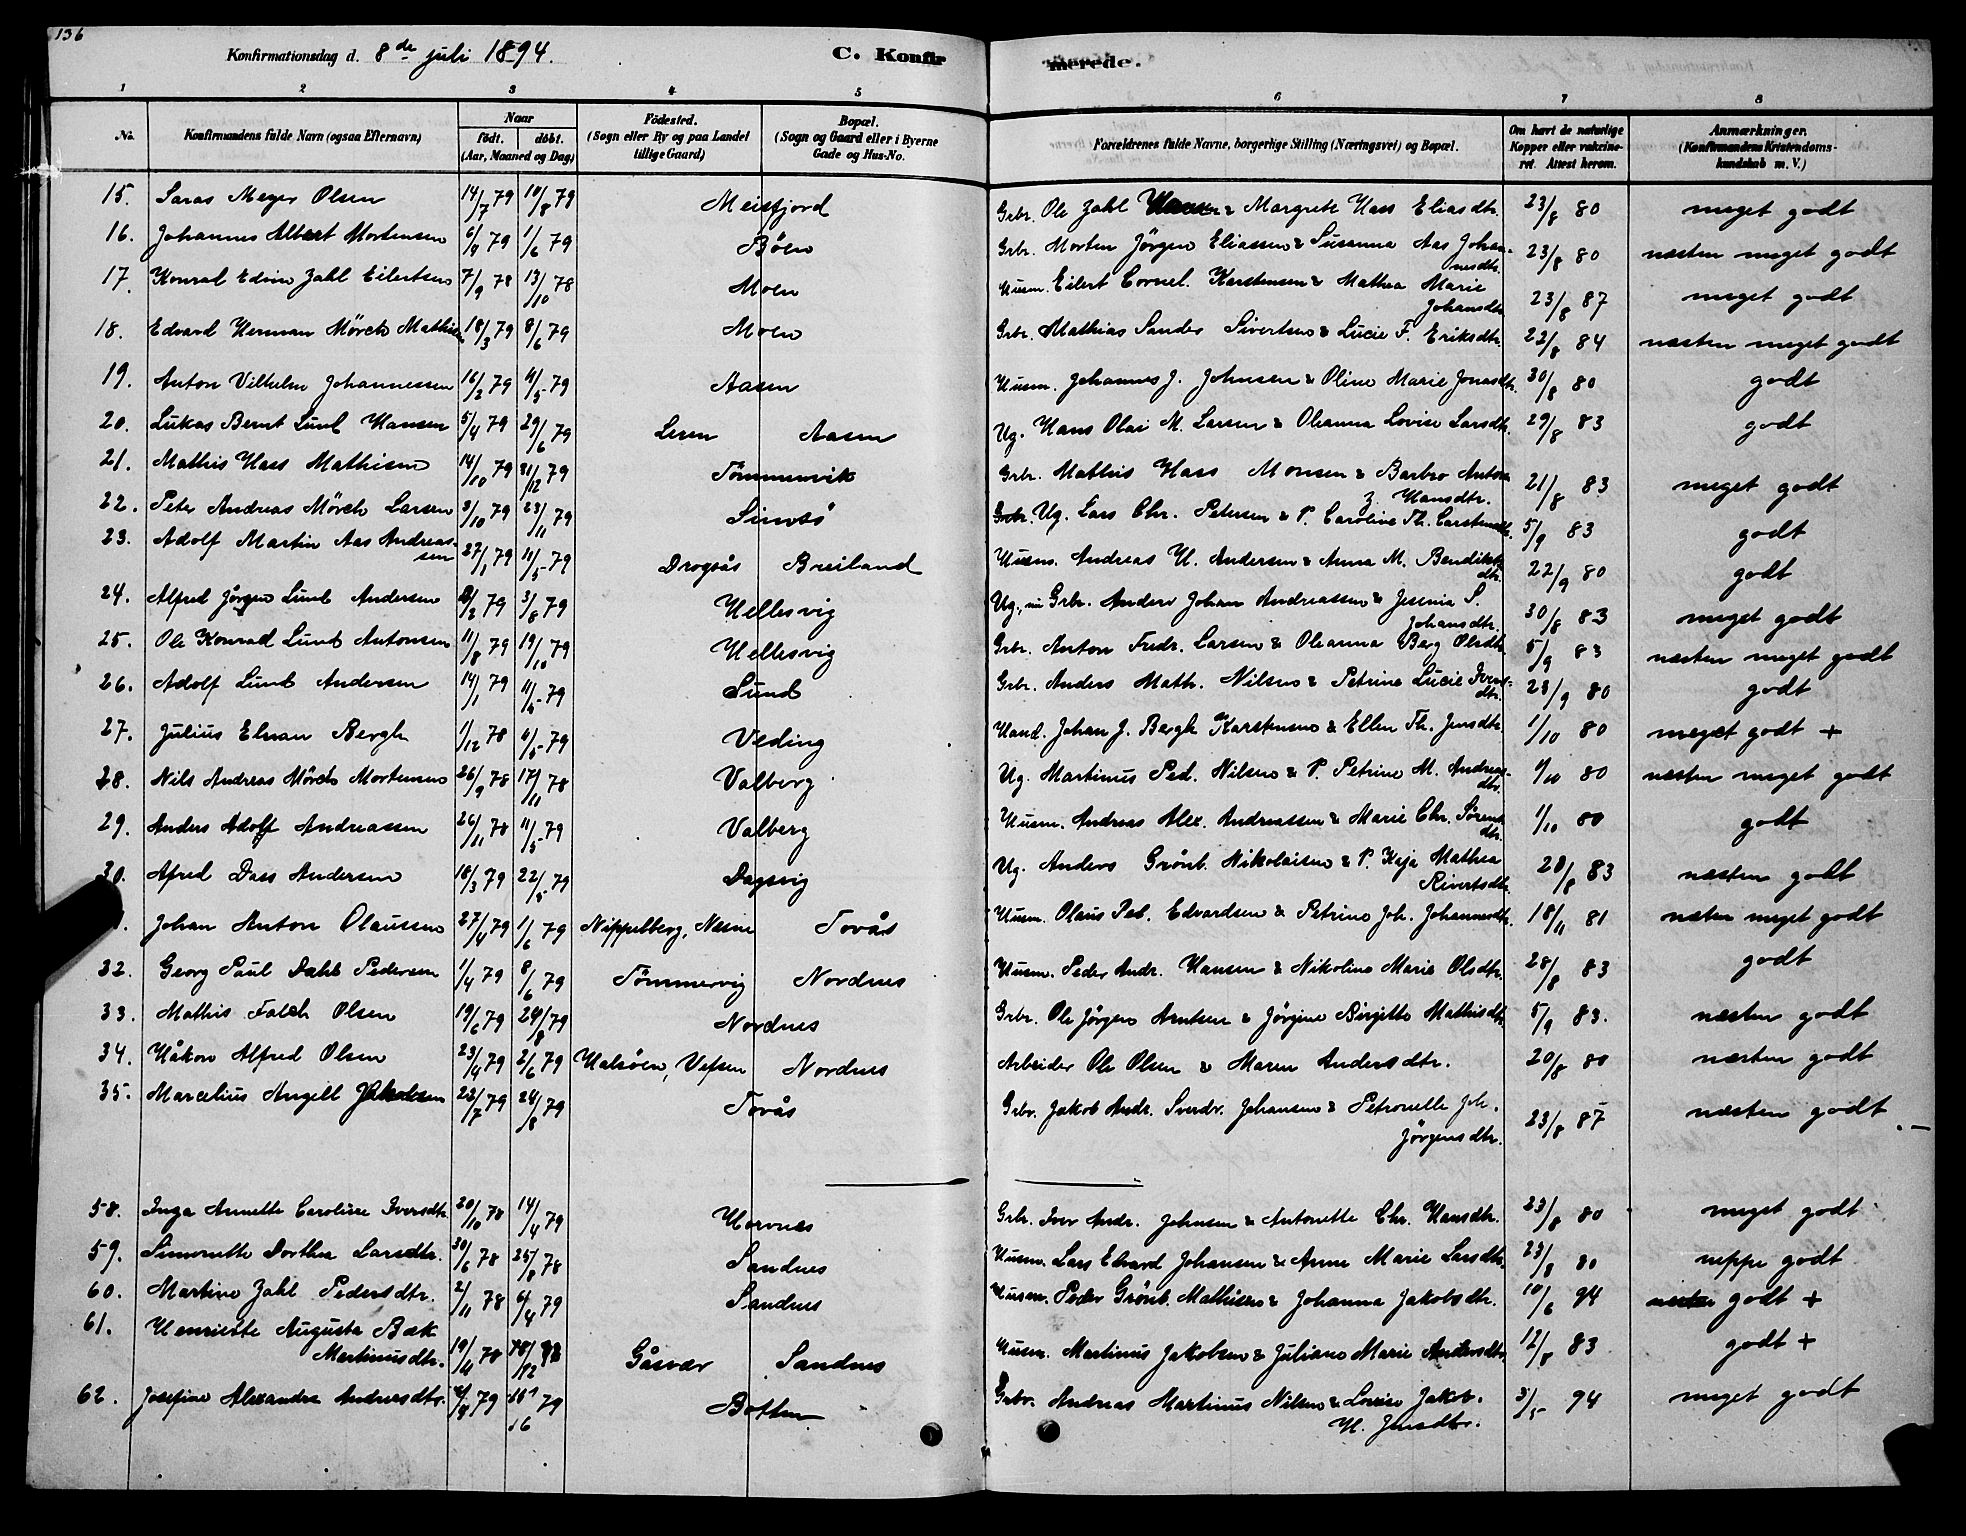 136
Konfirmationsdag d. 8de juli 1894.
C. Konfirmerede.
1 2 3 4 5 6 7 8
No. Konfirmandens fulde Navn (ogsaa Efternavn) Naar födt. döbt. (Aar, Maaned og Dag) Födested. (Sogn eller By og paa Landet tillige Gaard) Bopæl. (Sogn og Gaard eller i Byerne Gade og Hus-No. Forældrenes fulde Navne, borgerlige Stilling (Næringsvei) og Bopæl. Om havt de naturlige Kopper eller vakcineret. Attest herom. Anmærkninger. (Konfirmandens Kristendomskundskab m. V.)
15. Saras Meyer Olsen 14/7 79 10/8 79 Meisfjord Grbr. Ole Zahl Hansen & Margrete Hass Eliasdtr. 23/8 80 meget godt
16. Johannes Albert Mortensen 6/4 79 1/6 79 Bölen Grbr. Morten Jörgen Eliassen & Susanna Aas Johannesdtr. 23/8 80 næsten meget godt
17. Konrad Edvin Zahl Eilertsen 7/9 78 13/10 78 Moen Husm. Eilert Cornel. Karstensen & Mathea Marie Johansdtr. 23/8 87 meget godt
18. Edvard Herman Mörch Mathisen 18/3 79 8/6 79 Moen Grbr. Mathias Sander Sivertsen & Lucie F. Eriksdtr. 22/8 84 næsten meget godt
19. Anton Vilhelm Johannessen 16/2 79 11/5 79 Aasen Husm. Johannes J. Johnsen & Oline Marie Jonasdtr. 30/8 80 godt
20. Lukas Bernt Lund Hansen 5/4 79 29/6 79 Leren Aasen Ug. Hans Olai M. Larsen & Oleanna Lovise Larsdtr. 29/8 83 godt
21. Mathis Hass Mathisen 14/10 79 31/12 79 Tömmervik Grbr. Mathis Hass Monsen & Barbro Anton Z. Hansdtr. 21/8 83 meget godt
22. Peter Andreas Mörch Larsen 3/10 79 23/11 79 Ug. Lars Chr. Petersen & P. Caroline Th. Carstensdtr. 5/9 83 godt
23. Adolf Martin Aas Andreassen 27/1 79 11/5 79 Drogsås Breiland Husm. Andreas H. Andersen & Anna M. Bendiktsdtr. 22/9 80 godt
24. Alfred Jörgen Lund Andersen 2/2 79 3/8 79 Hellesvig Ug. nu Grbr. Anders Johan Andreassen & Jesenia S. Johansdtr. 30/8 83 meget godt
25. Ole Konrad Lund Antonsen 11/8 79 19/10 79 Hellesvig Grbr. Anton Fredr. Larsen & Oleanna Berg Olsdtr. 5/9 83 næsten meget godt
26. Adolf Lund Andersen 14/1 79 11/5 79 Sund Grbr. Anders Math. Nilsen & Petrine Lucie Iversdtr. 23/9 80 godt
27. Julius Elnan Bergh 1/12 78 6/5 79 Veding Hand. Johan J. Bergh Karstensen & Ellen Th. Jensdtr. 1/10 80 meget godt +
28. Nils Andreas Mörch Mortensen 26/9 78 17/11 78 Valberg Ug. Martinus Ped. Nilsen & P. Petrine M. Andreasdtr. 1/10 80 næsten meget godt
29. Anders Adolf Andreassen 26/11 78 11/5 79 Valberg Husm. Andreas Alex. Andreassen & Marie Chr. Sörensdtr. 1/10 80 godt
30. Afred Dass Andersen 18/3 79 22/5 79 Dagsvig Ug. Anders Grönb. Nikolaisen & P. Kaja Mathea Sivertsdtr. 28/8 83 næsten godt
Johan Anton Olaussen 27/4 79 1/6 79 Nippelberg, Nesne Tovås Husm. Olaus Ped. Edvardsen & Petrine Joh. Johannesdtr. 18/11 81 næsten meget godt
32. Georg Paul Dahl Pedersen 1/4 79 8/6 79 Tömmervig Nordnes Husm. Peder Andr. Hansen & Nikoline Marie Olsdtr. 28/8 83 godt
33. Mathis Falch Olsen 19/6 79 24/8 79 Nordnes Grbr. Ole Jörgen Arntsen & Jörgine Birgitte Mathisdtr. 5/9 83. næsten godt
34. Håkon Alfred Olsen 23/4 79 2/6 79 Halsöen, Vefsen Nordnes Arbeider Ole Olsen & Maren Andersdtr. 20/8 80 næsten godt
35. Marcelius Angell Jakobsen 22/7 79 24/8 79 Tovås Grbr. Jakob Andr. Sverdr. Johansen & Petronelle Joh. Jörgensdtr. 23/8 87 næsten godt
58. Inga Annette Caroline Iversdtr. 20/10 78 14/4 79 Hornnes Grbr. Iver Andr. Johnsen & Antonette Chr. Hansdtr. 23/8 80 meget godt
59. Simonette Dorthea Larsdtr. 30/6 78 25/8 78 Sandnes Husm. Lars Edvard Johansen & Anne Marie Larsdtr. 23/8 80 neppe godt
60. Martine Zahl Pedersdtr. 2/11 78 6/4 79 Sandnes Husm. Peder Grönb. Mathisen & Johanna Jakobsdtr. 10/6 94 godt +
61. Henriette Augusta Bæk Martinusdtr. 19/4 78 Gåsvær Sandnes Husm. Martinus Jakobsen & Juliane Marie Andersdtr. 12/8 83 godt +
62. Josefine Alexandra Andreasdtr. 79 79 Botten Grbr. Andreas Martinus Nilsen & Lovise Jakob. H. Jensdtr. 3/5 94 meget godt